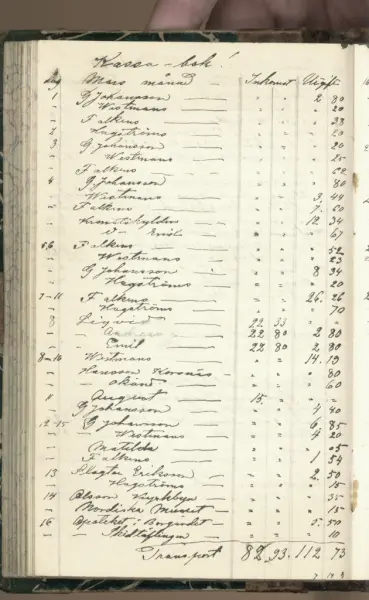 Kassa-bok!
Dag Mars månad Inkomst Utgift
1 G Johansson " " 2 80
" Westmans " " " 20
" Falkens " "
2 Hagströms " " " 20
3 G Johansson " " " 20
" Westmans " " " 25
" Falkens " " " 62
4 G Johansson " " " 80
" Westmans " " 3. 44
" Falkens " " 7. 60
" " " 12 34
" " " " 67
5,6 Falkens " " " 52
" Westmans " " " 23
" G Johansson " " 8 34
" Hagströms " " " 20
7-11 Falkens " " 26. 26
" Hagströms " " " 70
8 Liqvid 22 33
" 22 80 2 80
" Emil 22 80 2 80
8-10 Westmans " " 14. 19
" Hansson " " " 80
" Okänd " " " 60
11 August 15. "
" G Johansson " " 4 40
12-15 G Johansson " " 6. 85
" Westmans " " 4 20
" Matilda " " " 05
" Falkens " " 1 54
13 Slagtar Eriksson " " 2. 50
" Hagströms " " " 15
14 Olsson " " " 35
" Nordiska Museet " " " 15
16 Apoteket i " " 5. 50
" " " " 10
Transport 82 93. 112 73